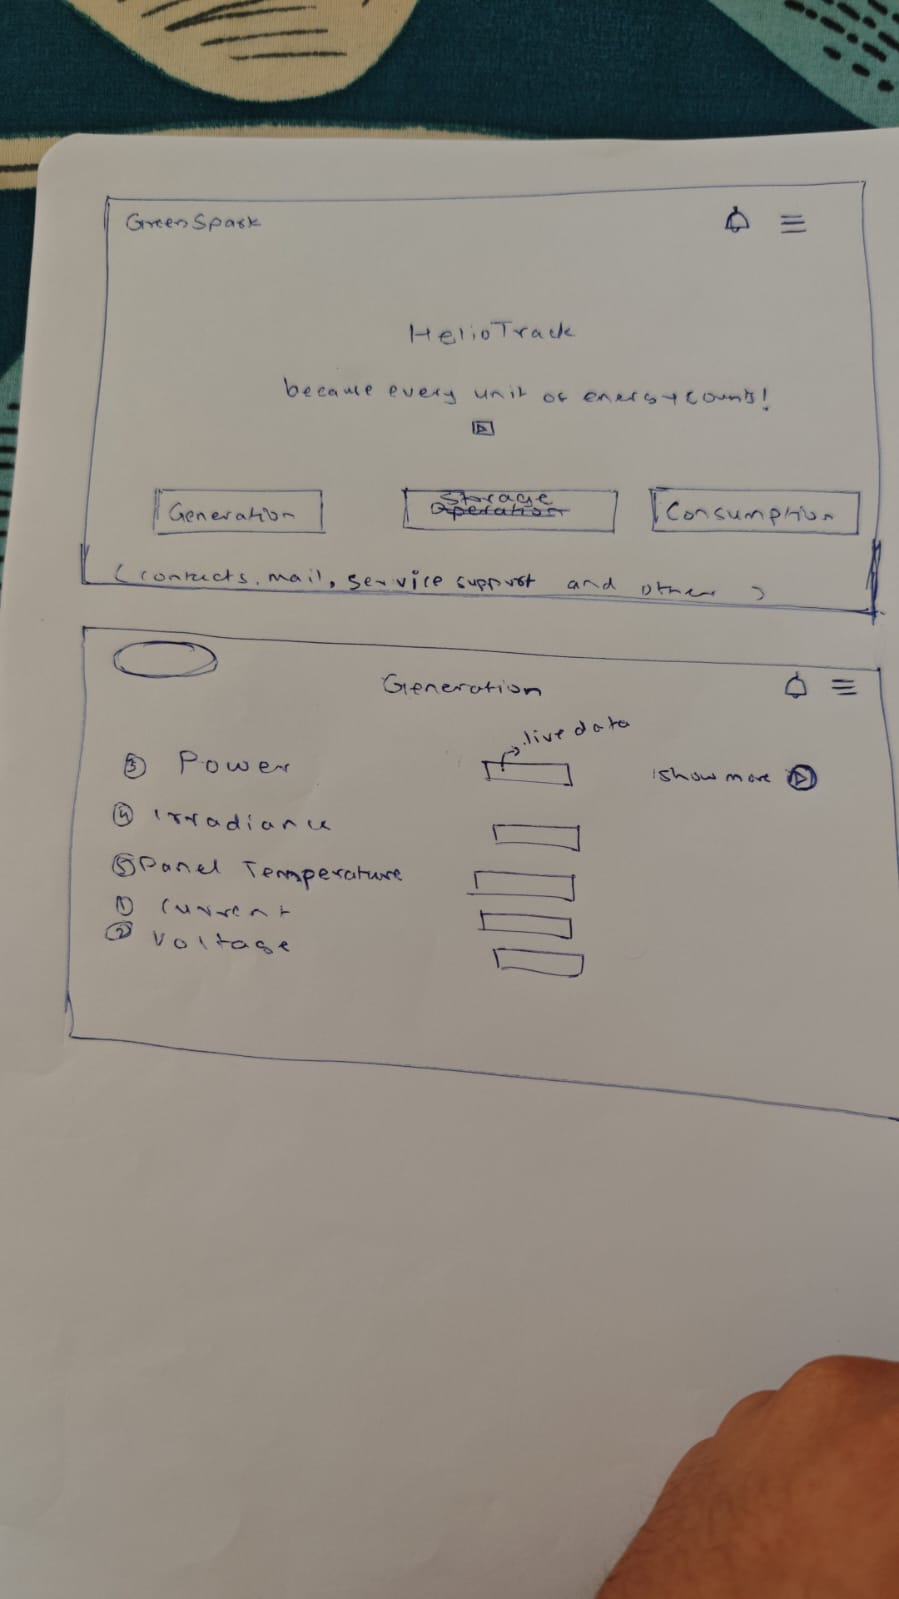 GreenSpark
HelioTrack
because every unit of energy counts!
Generation
Storage
Operation
Consumption
(contacts, mail, service support and others)
Generation
live data
③ Power
show more
④ Irradiance
⑤ Panel Temperature
① Current
② Voltage